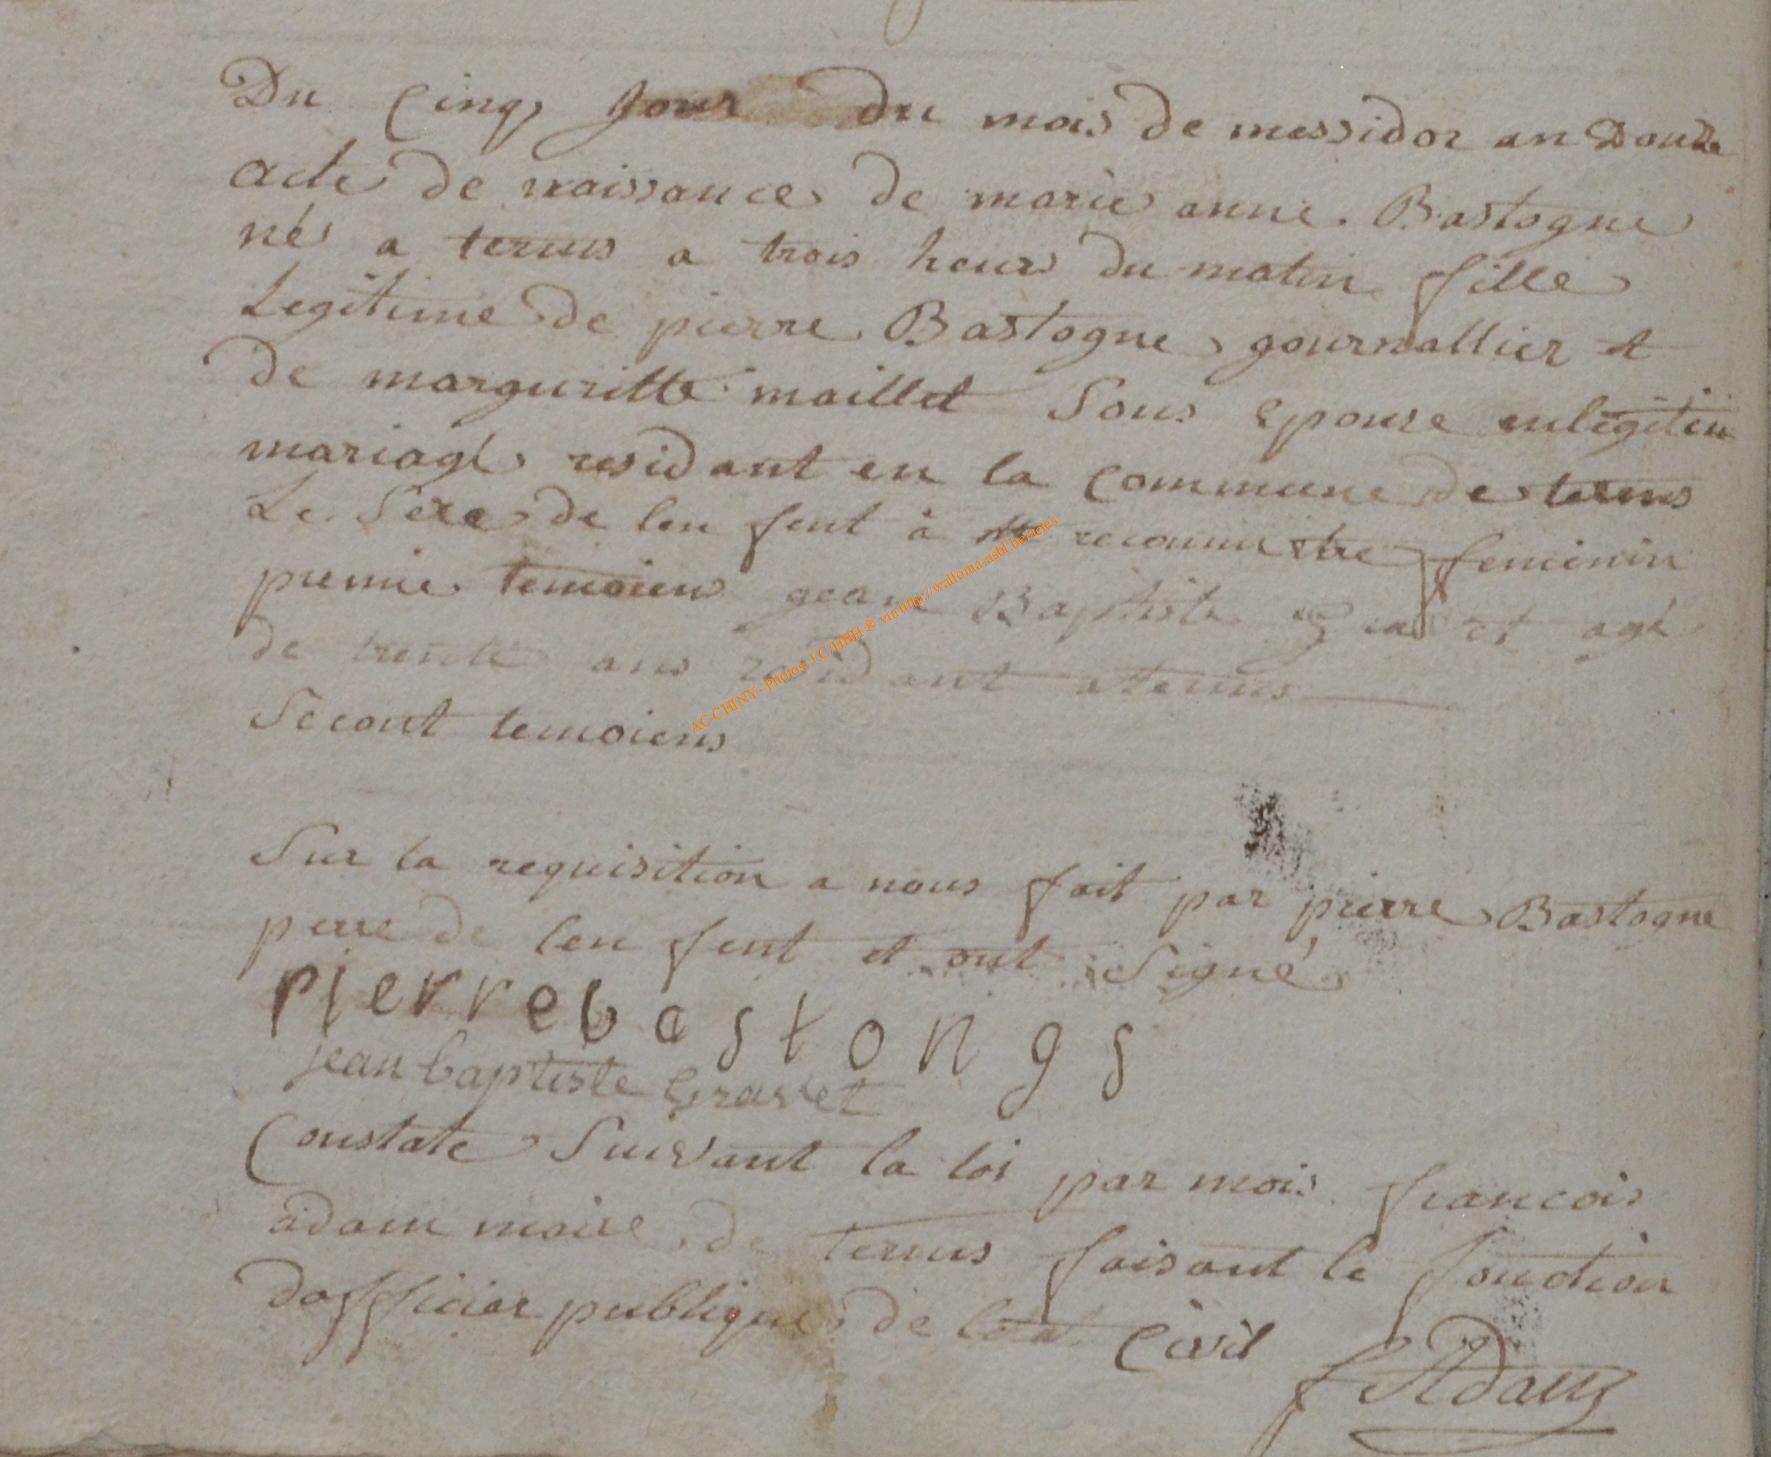 Du Cinq Jour du mois de messidor an Douze
acte de naissance de marie anne Bastogne
né a termes a trois heurs du matin fille
Legitime de pierre Bastogne gournallier et
de margueritte maillet Sous epouse enlegitim
mariage residant en la commune de termes
Le Sexe de len fent à reconnu etre feminin
premie temoiens gean Baptiste Gravet agé
de trente ans residant a termes
Secont temoiens
Sur la requisition a nous fait par pierre Bastogne
pere de len fent et ont Signé
pierre bastongs
jean baptiste Gravet
Constate Suivant la loi par mois francois
adam maire de termes faisant le fonction
dofficier publique de letat Civil
f Adam
AC CHINY - Photos J.C.